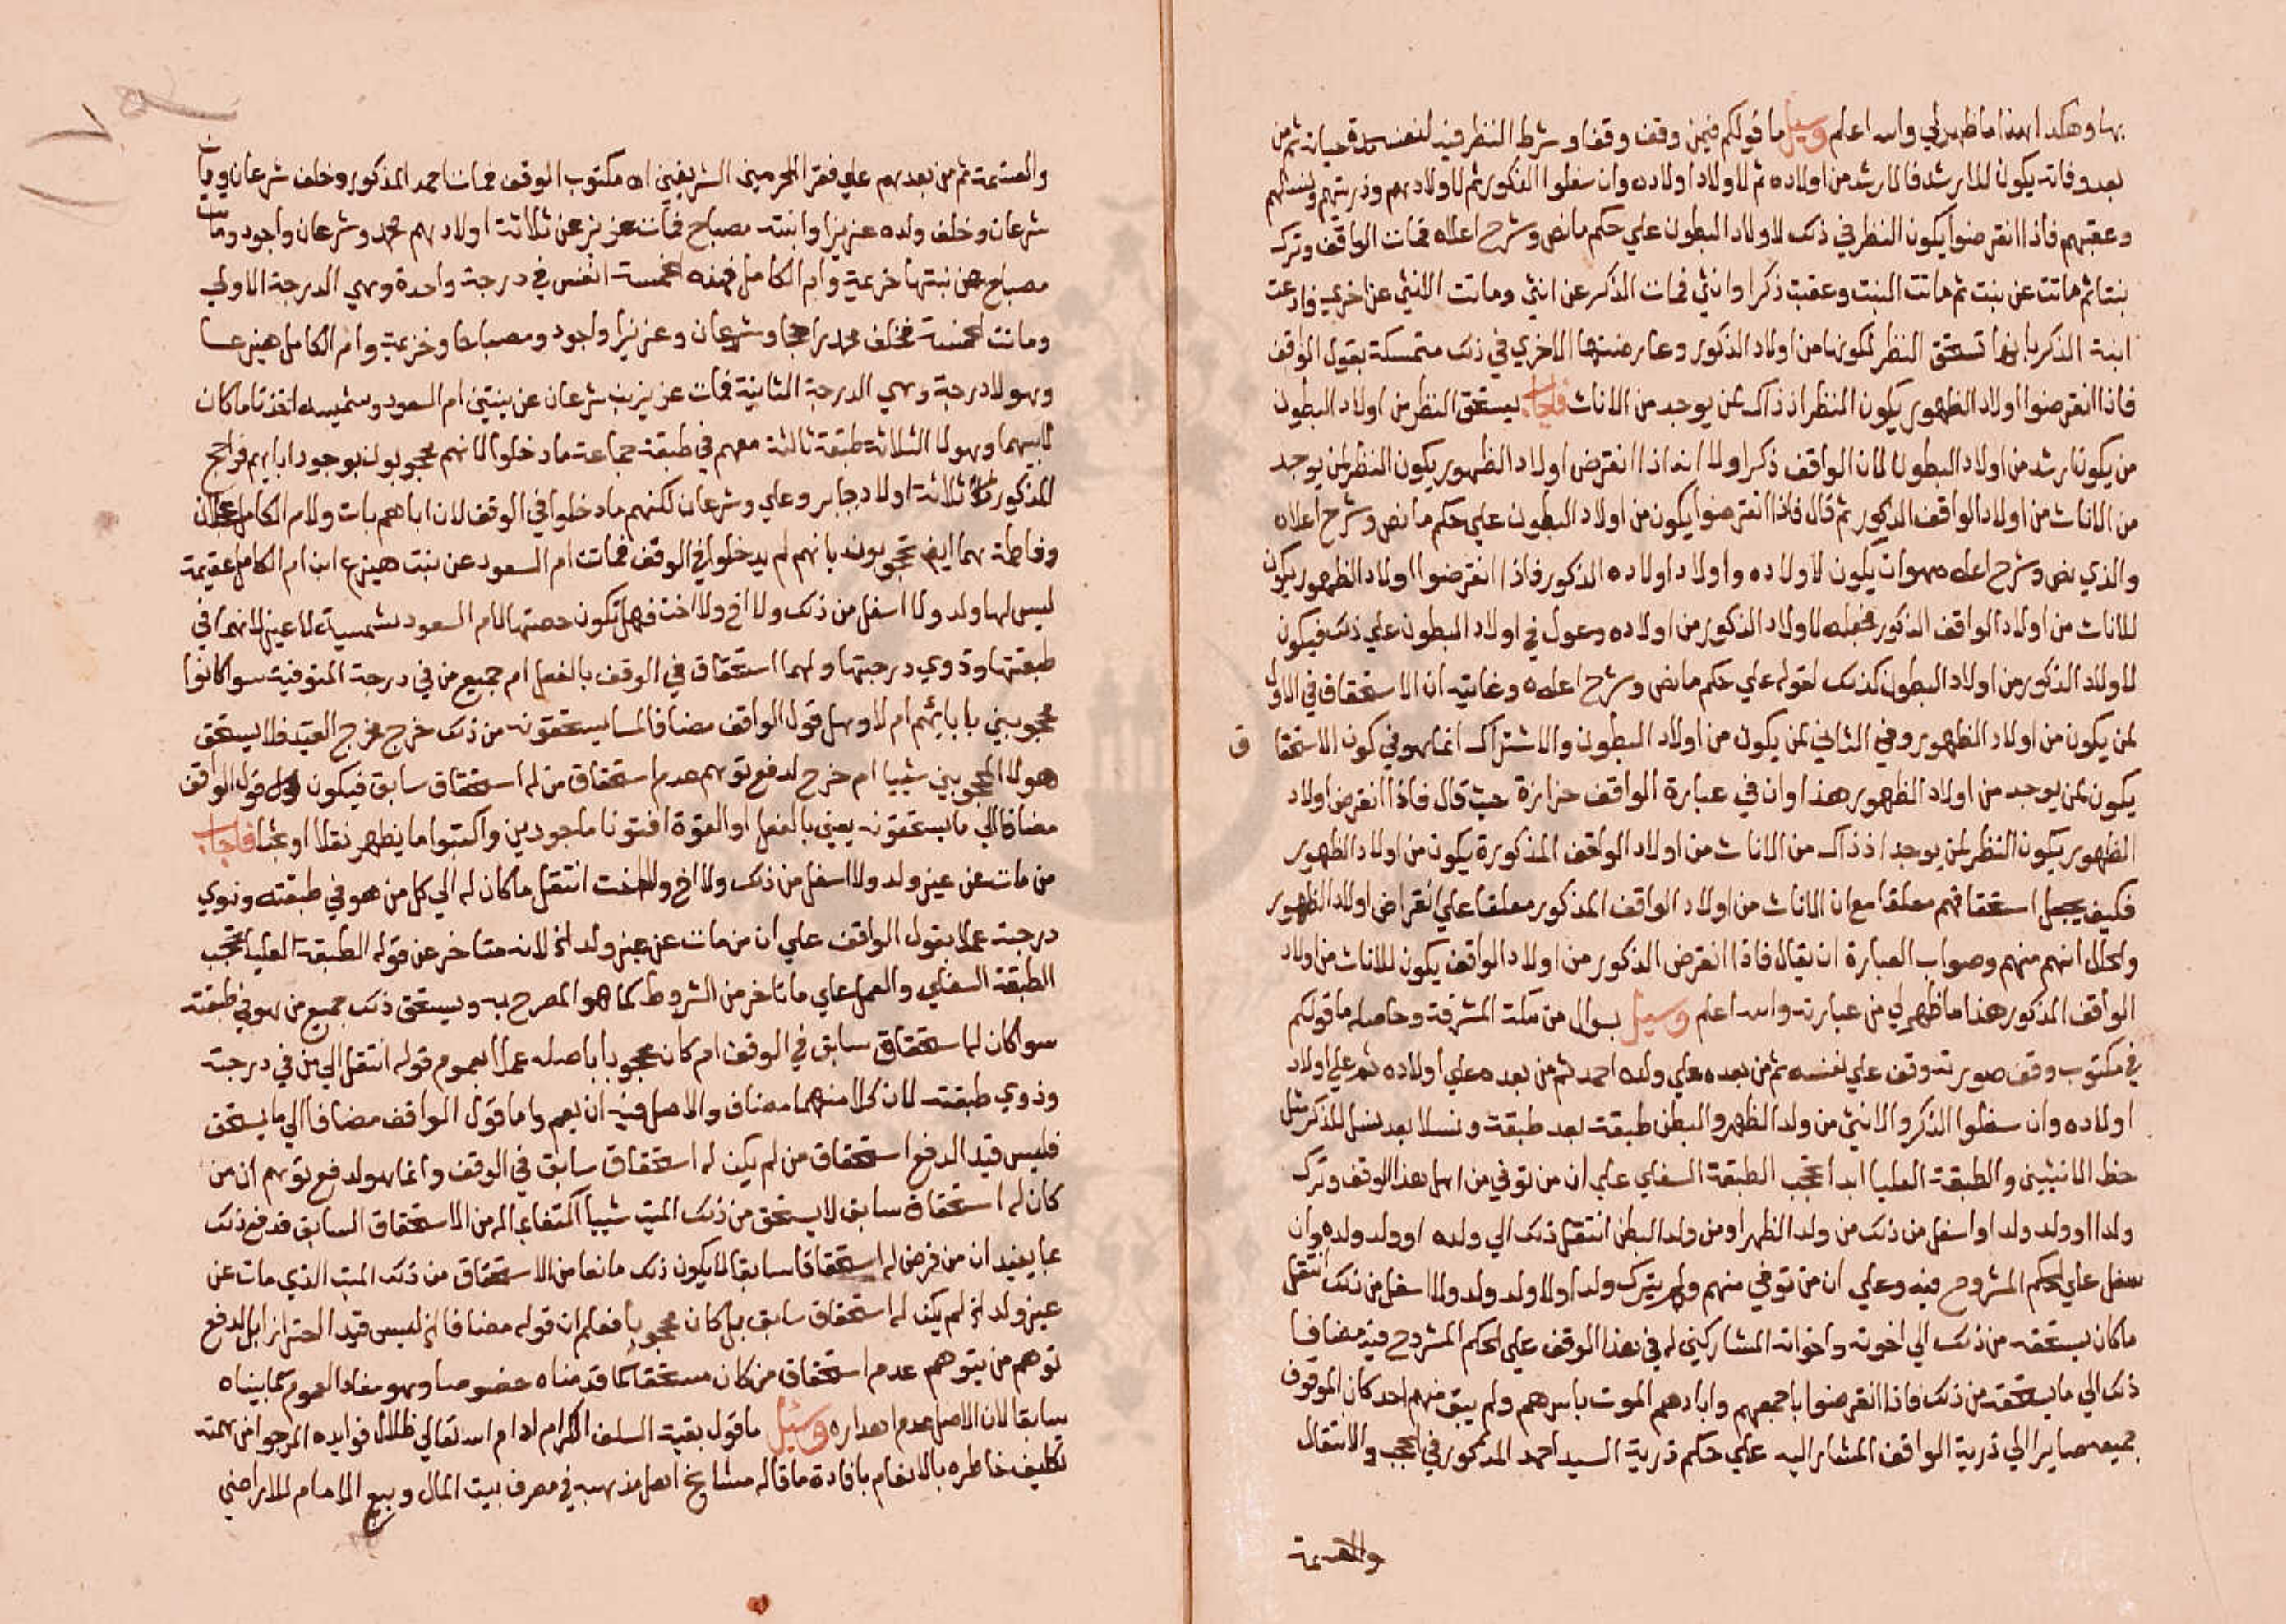 بها وهكذا هذا ما ظهر لي والله اعلم وسيل ما قولكم فيمن وقف وقفا وشرط النظر فيه لنفسه مدة حياته ثم من
بعد وفاته يكون للارشد فالارشد من اولاده ثم لاولاد اولاده وان سفلوا الذكور ثم لاولادهم وذريتهم ونسلهم
وعقبهم فاذا انقرضوا يكون النظر في ذلك لاولاد البطون علي حكم ما نص وشرح اعلاه فمات الواقف وترك
بنتا ثم ماتت عن بنت ثم ماتت البنت وعقبت ذكرا وانثي فمات الذكر عن انثي وماتت الانثي عن اخري فادعت
ابنة الذكر بانها تستحق النظر لكونها من اولاد الذكور وعارضتها الاخري في ذلك متمسكة بقول الواقف
فاذا انقرضوا اولاد الظهور يكون النظر اذ ذاك لمن يوجد من الاناث فاجاب يستحق النظر من اولاد البطون
من يكون ارشد من اولاد البطون لان الواقف ذكر اولا انه اذا انقرض اولاد الظهور يكون النظر لمن يوجد
من الاناث من اولاد الواقف الذكور ثم قال فاذا انقرضوا يكون من اولاد البطون علي حكم ما نص وشرح اعلاه
والذي نص وشرح اعلاه هو ان يكون لاولاده واولاد اولاده الذكور فاذا انقرضوا اولاد الظهور يكون
للاناث من اولاد الواقف الذكور فجعله لاولاد الذكور من اولاده وعول في اولاد البطون علي ذلك فيكون
لاولاد الذكور من اولاد البطون كذلك لقوله علي حكم ما نص وشرح اعلاه وغايته ان الاستحقاق في الاول
لمن يكون من اولاد الظهور وفي الثاني لمن يكون من اولاد البطون والاشتراك انما هو في كون الاستحقا ق
يكون لمن يوجد من اولاد الظهور هذا وان في عبارة الواقف حزازة حيث قال فاذا انقرض اولاد
الظهور يكون النظر لمن يوجد اذ ذاك من الاناث من اولاد الواقف المذكورة يكون من اولاد الظهور
فكيف يجعل استحقاقهم معلقا مع ان الاناث من اولاد الواقف المذكور معلقا علي انقراض اولاد الظهور
والحال انهم منهم وصواب العبارة ان يقال فاذا انقرض الذكور من اولاد الواقف يكون للاناث من اولاد
الواقف المذكور هذا ما ظهر لي من عبارته والله اعلم وسيل بسوال من مكة المشرفة وحاصله ما قولكم
في مكتوب وقف صورته وقف علي نفسه ثم من بعده علي ولده احمد ثم من بعده علي اولاده ثم علي اولاد
اولاده وان سفلوا الذكر والانثي من ولد الظهر والبطن طبقة بعد طبقة ونسلا بعد نسل للذكر مثل
حظ الانثيين والطبقة العليا ابدا تحجب الطبقة السفلي علي ان من توفي من اهل هذا الوقف وترك
ولدا او ولد ولد او اسفل من ذلك من ولد الظهر او من ولد البطن انتقل ذلك الي ولده او ولد ولده وان
سفل علي الحكم المشروح فيه وعلي ان من توفي منهم ولم يترك ولدا ولا ولد ولد ولا اسفل من ذلك انتقل
ما كان يستحقه من ذلك الي اخوته واخواته المشاركين له في هذا الوقف علي الحكم المشروح فيه مضافا
ذلك الي ما يستحقه من ذلك فاذا انقرضوا باجمعهم وابادهم الموت باسرهم ولم يبق منهم احد كان الموقوف
جميعه صايرا الي ذرية الواقف المشار اليه علي حكم ذرية السيد احمد المذكور في الحجب والانتقال
والقسمة
والقسمة ثم من بعدهم علي فقرا الحرمين الشريفين اه مكتوب الوقف فمات احمد المذكور وخلف شرعان ومات
شرعان وخلف ولده عزيزا وابنته مصباح فمات عزيز عن ثلاثة اولادهم محمد وشرعان واجود ومات
مصباح عن بنتها خزيمة وام الكامل فهذه الخمسة انفس في درجة واحدة وهي الدرجة الاولي
وماتت الخمسة فخلف محمد راجحا وشرعان وعزيزا واجود ومصباحا وخزيمة وام الكامل هيزعا
وهولا درجة وهي الدرجة الثانية فمات عزيز بن شرعان عن بنتين ام السعود وشميسه اخذتا ما كان
لابيهما وهولا الثلاثة طبقة ثالثة معهم في طبقة جماعة ما دخلوا لانهم محجوبون بوجود ابايهم فراجح
المذكور له ثلاثة اولاد جابر وعلي وشرعان لكنهم ما دخلوا في الوقف لان اباهم بات ولام الكامل عجلان
وفاطمة هما ايضا محجوبون بانهم لم يدخلوا في الوقف فماتت ام السعود عن بنت هيزع ابن ام الكامل عقيمة
ليس لها ولد ولا اسفل من ذلك ولا اخ ولا اخت فهل تكون حصتها لام السعود شميسة لا غير لانهما في
طبقتها وذوي درجتها ولهما استحقاق في الوقف بالفعل ام جميع من في درجة المتوفية سوا كانوا
محجوبين بابايهم ام لا وهل قول الواقف مضافا لما يستحقونه من ذلك خرج مخرج القيد فلا يستحق
هولا المحجوبين شييا ام خرج لدفع توهم عدم استحقاق من له استحقاق سابق فيكون قول الواقف
مضافا الي ما يستحقونه يعني بالفعل او القوة افتونا ماجورين واكتبوا ما يظهر نقلا او بحثا فاجاب
من مات عن غير ولد ولا اسفل من ذلك ولا اخ ولا اخت انتقل ما كان له الي كل من هو في طبقته وذوي
درجته عملا بقول الواقف علي ان من مات عن غير ولد الخ لانه متاخر عن قوله الطبقة العليا تحجب
الطبقة السفلي والعمل علي ما تاخر من الشروط كما هو المصرح به ويستحق ذلك جميع من هو في طبقته
سوا كان له استحقاق سابق في الوقف ام كان محجوبا باصله عملا بعموم قوله انتقل الي من في درجته
وذوي طبقته لان كلا منهما مضاف والاصل فيه ان يعم واما قول الواقف مضافا الي ما يستحق
فليس قيدا لدفع استحقاق من لم يكن له استحقاق سابق في الوقف وانما هو لدفع توهم ان من
كان له استحقاق سابق لا يستحق من ذلك الميت شييا اكتفاء بما له من الاستحقاق السابق فدفع ذلك
بما يفيد ان من فرض له استحقاقا سابقا لا يكون ذلك مانعا من الاستحقاق من ذلك الميت الذي مات عن
غير ولد الخ لم يكن له استحقاق سابق بل كان محجوبا فعلم ان قوله مضافا الخ ليس قيدا لاحتراز بل لدفع
توهم من يتوهم عدم استحقاق من كان مستحقا كما قدمناه خصوصا وهو مفاد العموم كما بيناه
سابقا لان الاصل عدم اهداره وسئل ما قول بقية السلف الكرام ادام الله تعالي ظلال فوايده المرجو من همته
تكليف خاطره بالانعام بافادة ما قاله مشايخ اهل مذهبه في مصرف بيت المال وبيع الامام للاراضي